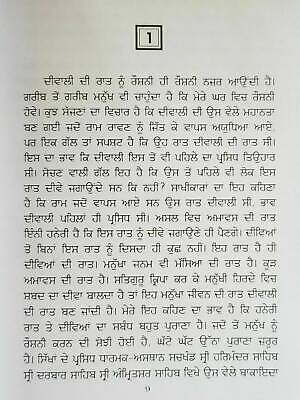 1
ਦੀਵਾਲੀ ਦੀ ਰਾਤ ਨੂੰ ਰੌਸ਼ਨੀ ਹੀ ਰੌਸ਼ਨੀ ਨਜ਼ਰ ਆਉਂਦੀ ਹੈ।
ਗਰੀਬ ਤੋਂ ਗਰੀਬ ਮਨੁੱਖ ਵੀ ਚਾਹੁੰਦਾ ਹੈ ਕਿ ਮੇਰੇ ਘਰ ਵਿਚ ਰੌਸ਼ਨੀ
ਹੋਵੇ। ਕੁਝ ਸੱਜਣਾਂ ਦਾ ਵਿਚਾਰ ਹੈ ਕਿ ਦੀਵਾਲੀ ਦੀ ਉਸ ਵੇਲੇ ਮਹਾਨਤਾ
ਬਣ ਗਈ ਜਦੋਂ ਰਾਮ ਰਾਵਣ ਨੂੰ ਜਿੱਤ ਕੇ ਵਾਪਸ ਅਯੁਧਿਆ ਆਏ.
ਪਰ ਇਕ ਗੱਲ ਤਾਂ ਸਪਸ਼ਟ ਹੈ ਕਿ ਉਹ ਰਾਤ ਦੀਵਾਲੀ ਦੀ ਰਾਤ ਸੀ।
ਇਸ ਦਾ ਭਾਵ ਕਿ ਦੀਵਾਲੀ ਇਸ ਤੋਂ ਵੀ ਪਹਿਲੇ ਦਾ ਪ੍ਰਸਿਧ ਤਿਉਹਾਰ
ਸੀ। ਸੋਚਣ ਵਾਲੀ ਗੱਲ ਇਹ ਹੈ ਕਿ ਉਸ ਤੋਂ ਪਹਿਲੇ ਵੀ ਲੋਕ ਇਸ
ਰਾਤ ਦੀਵੇ ਜਗਾਉਂਦੇ ਸਨ ਕਿ ਨਹੀਂ? ਸਾਖੀਕਾਰਾਂ ਦਾ ਇਹ ਕਹਿਣਾ
ਹੈ ਕਿ ਰਾਮ ਜਦੋਂ ਵਾਪਸ ਆਏ ਸਨ ਉਸ ਰਾਤ ਦੀਵਾਲੀ ਸੀ, ਭਾਵ
ਦੀਵਾਲੀ ਪਹਿਲਾਂ ਹੀ ਪ੍ਰਸਿਧ ਸੀ। ਅਸਲ ਵਿਚ ਅਮਾਵਸ ਦੀ ਰਾਤ
ਇੰਨੀ ਹਨੇਰੀ ਹੈ ਕਿ ਇਸ ਰਾਤ ਨੂੰ ਦੀਵੇ ਜਗਾਉਣੇ ਹੀ ਪੈਣਗੇ। ਦੀਵਿਆਂ
ਤੋਂ ਬਿਨਾਂ ਇਸ ਰਾਤ ਨੂੰ ਦਿਸਦਾ ਹੀ ਕੁਛ ਨਹੀਂ। ਇਹ ਰਾਤ ਹੈ ਹੀ
ਦੀਵਿਆਂ ਦੀ ਰਾਤ। ਮਨੁੱਖਾ ਜਨਮ ਵੀ ਮੱਸਿਆ ਦੀ ਰਾਤ ਹੈ। ਕੂੜ
ਅਮਾਵਸ ਦੀ ਰਾਤ ਹੈ। ਸਤਿਗੁਰੂ ਕ੍ਰਿਪਾ ਕਰ ਕੇ ਮਨੁੱਖੀ ਹਿਰਦੇ ਵਿਚ
ਸ਼ਬਦ ਦਾ ਦੀਵਾ ਬਾਲਦਾ ਹੈ ਤਾਂ ਇਹ ਮਨੁੱਖਾ ਜੀਵਨ ਦੀ ਰਾਤ ਦੀਵਾਲੀ
ਦੀ ਰਾਤ ਬਣ ਜਾਂਦੀ ਹੈ। ਮੇਰੇ ਇਹ ਕਹਿਣ ਦਾ ਭਾਵ ਹੈ ਕਿ ਹਨੇਰੀ
ਰਾਤ ਤੇ ਦੀਵਿਆਂ ਦਾ ਸਬੰਧ ਬਹੁਤ ਪੁਰਾਣਾ ਹੈ। ਜਦੋਂ ਤੋਂ ਮਨੁੱਖ ਨੂੰ
ਰੌਸ਼ਨੀ ਕਰਨ ਦੀ ਸੋਝੀ ਹੋਈ ਹੈ. ਘੱਟੋ ਘੱਟ ਉੱਨਾ ਪੁਰਾਣਾ ਜ਼ਰੂਰ
ਹੈ। ਸਿੱਖਾਂ ਦੇ ਪ੍ਰਸਿਧ ਧਾਰਮਕ-ਅਸਥਾਨ ਸਚਖੰਡ ਸ੍ਰੀ ਹਰਿਮੰਦਰ ਸਾਹਿਬ
ਸ੍ਰੀ ਦਰਬਾਰ ਸਾਹਿਬ ਸ੍ਰੀ ਅੰਮ੍ਰਿਤਸਰ ਸਾਹਿਬ ਵਿਖੇ ਉਸ ਵੇਲੇ ਬਾਕਾਇਦਾ
9